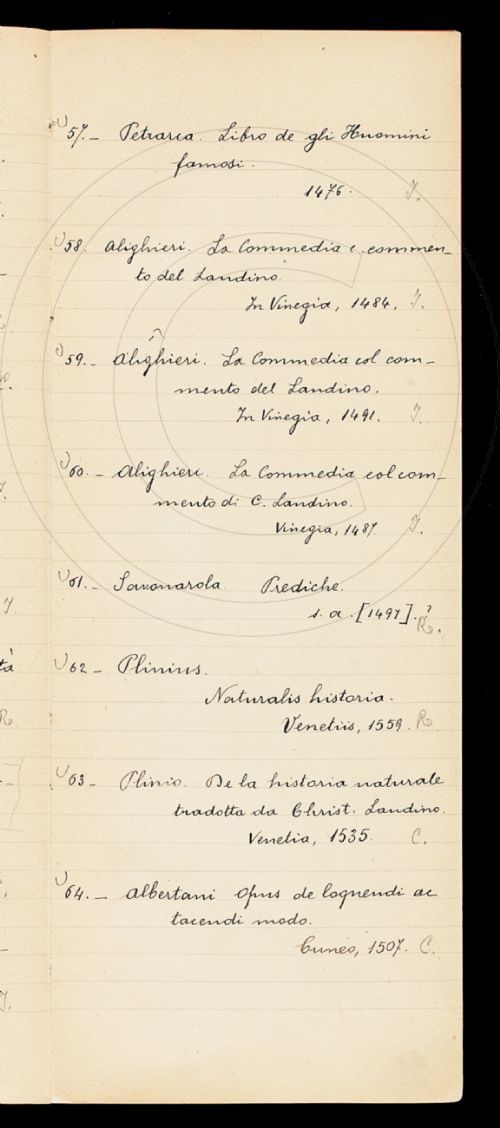 57.- Petrarca. Libro de gli Huomini
famosi.
1476. I.
58. Alighieri. La Commedia c. commen-
to del Landino.
In Vinegia, 1484. I.
59.- Alighieri. La Commedia col com-
mento del Landino.
In Vinegia, 1491. I.
60.- Alighieri. La Commedia col com-
mento di C. Landino.
Vinegia, 1487. I.
61.- Savonarola. Prediche.
s. a. [1497].?
R.
62- Plinius.
Naturalis historia.
Venetiis, 1559. R
63- Plinio. De la historia naturale
tradotta da Christ. Landino.
Venetia, 1535. C.
64.- Albertani Opus de loquendi ac
tacendi modo.
Cuneo, 1507. C.